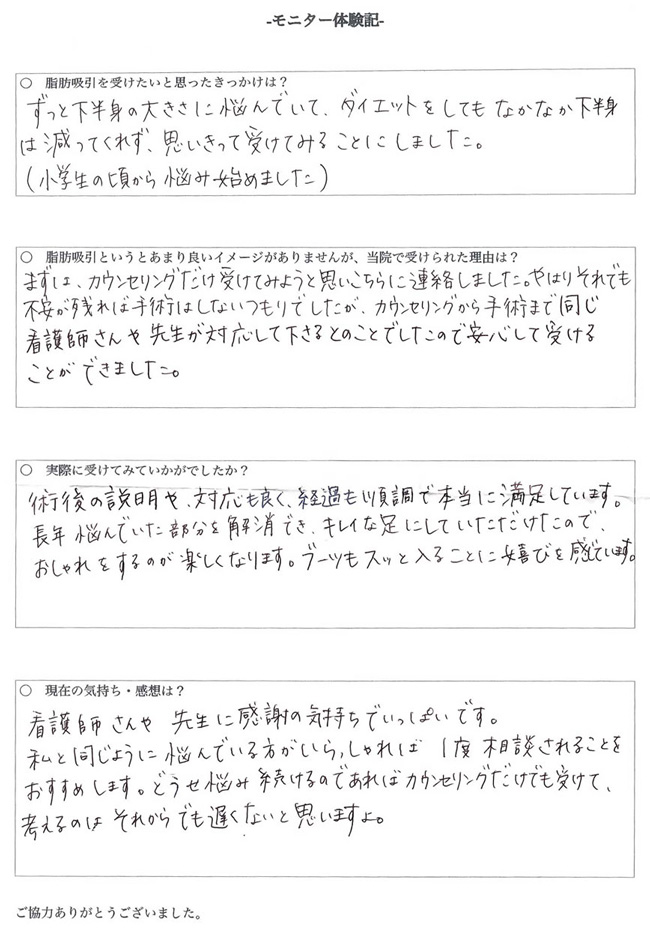 -モニター体験記-
○ 脂肪吸引を受けたいと思ったきっかけは？
ずっと下半身の大きさに悩んでいて、ダイエットをしてもなかなか下半身
は減ってくれず、思いきって受けてみることにしました。
(小学生の頃から悩み始めました)
○ 脂肪吸引というとあまり良いイメージがありませんが、当院で受けられた理由は？
まずは、カウンセリングだけ受けてみようと思いこちらに連絡しました。やはりそれでも
不安が残れば手術はしないつもりでしたが、カウンセリングから手術まで同じ
看護師さんや先生が対応して下さるとのことでしたので安心して受ける
ことができました。
○ 実際に受けてみていかがでしたか？
術後の説明や、対応も良く、経過も順調で本当に満足しています。
長年悩んでいた部分を解消でき、キレイな足にしていただけたので、
おしゃれをするのが楽しくなります。ブーツもスッと入ることに嬉びを感じています。
○ 現在の気持ち・感想は？
看護師さんや 先生に感謝の気持ちでいっぱいです。
私と同じように悩んでいる方がいらっしゃれば 1度相談されることを
おすすめします。どうせ悩み続けるのであればカウンセリングだけでも受けて、
考えるのは それからでも遅くないと思いますよ。
ご協力ありがとうございました。